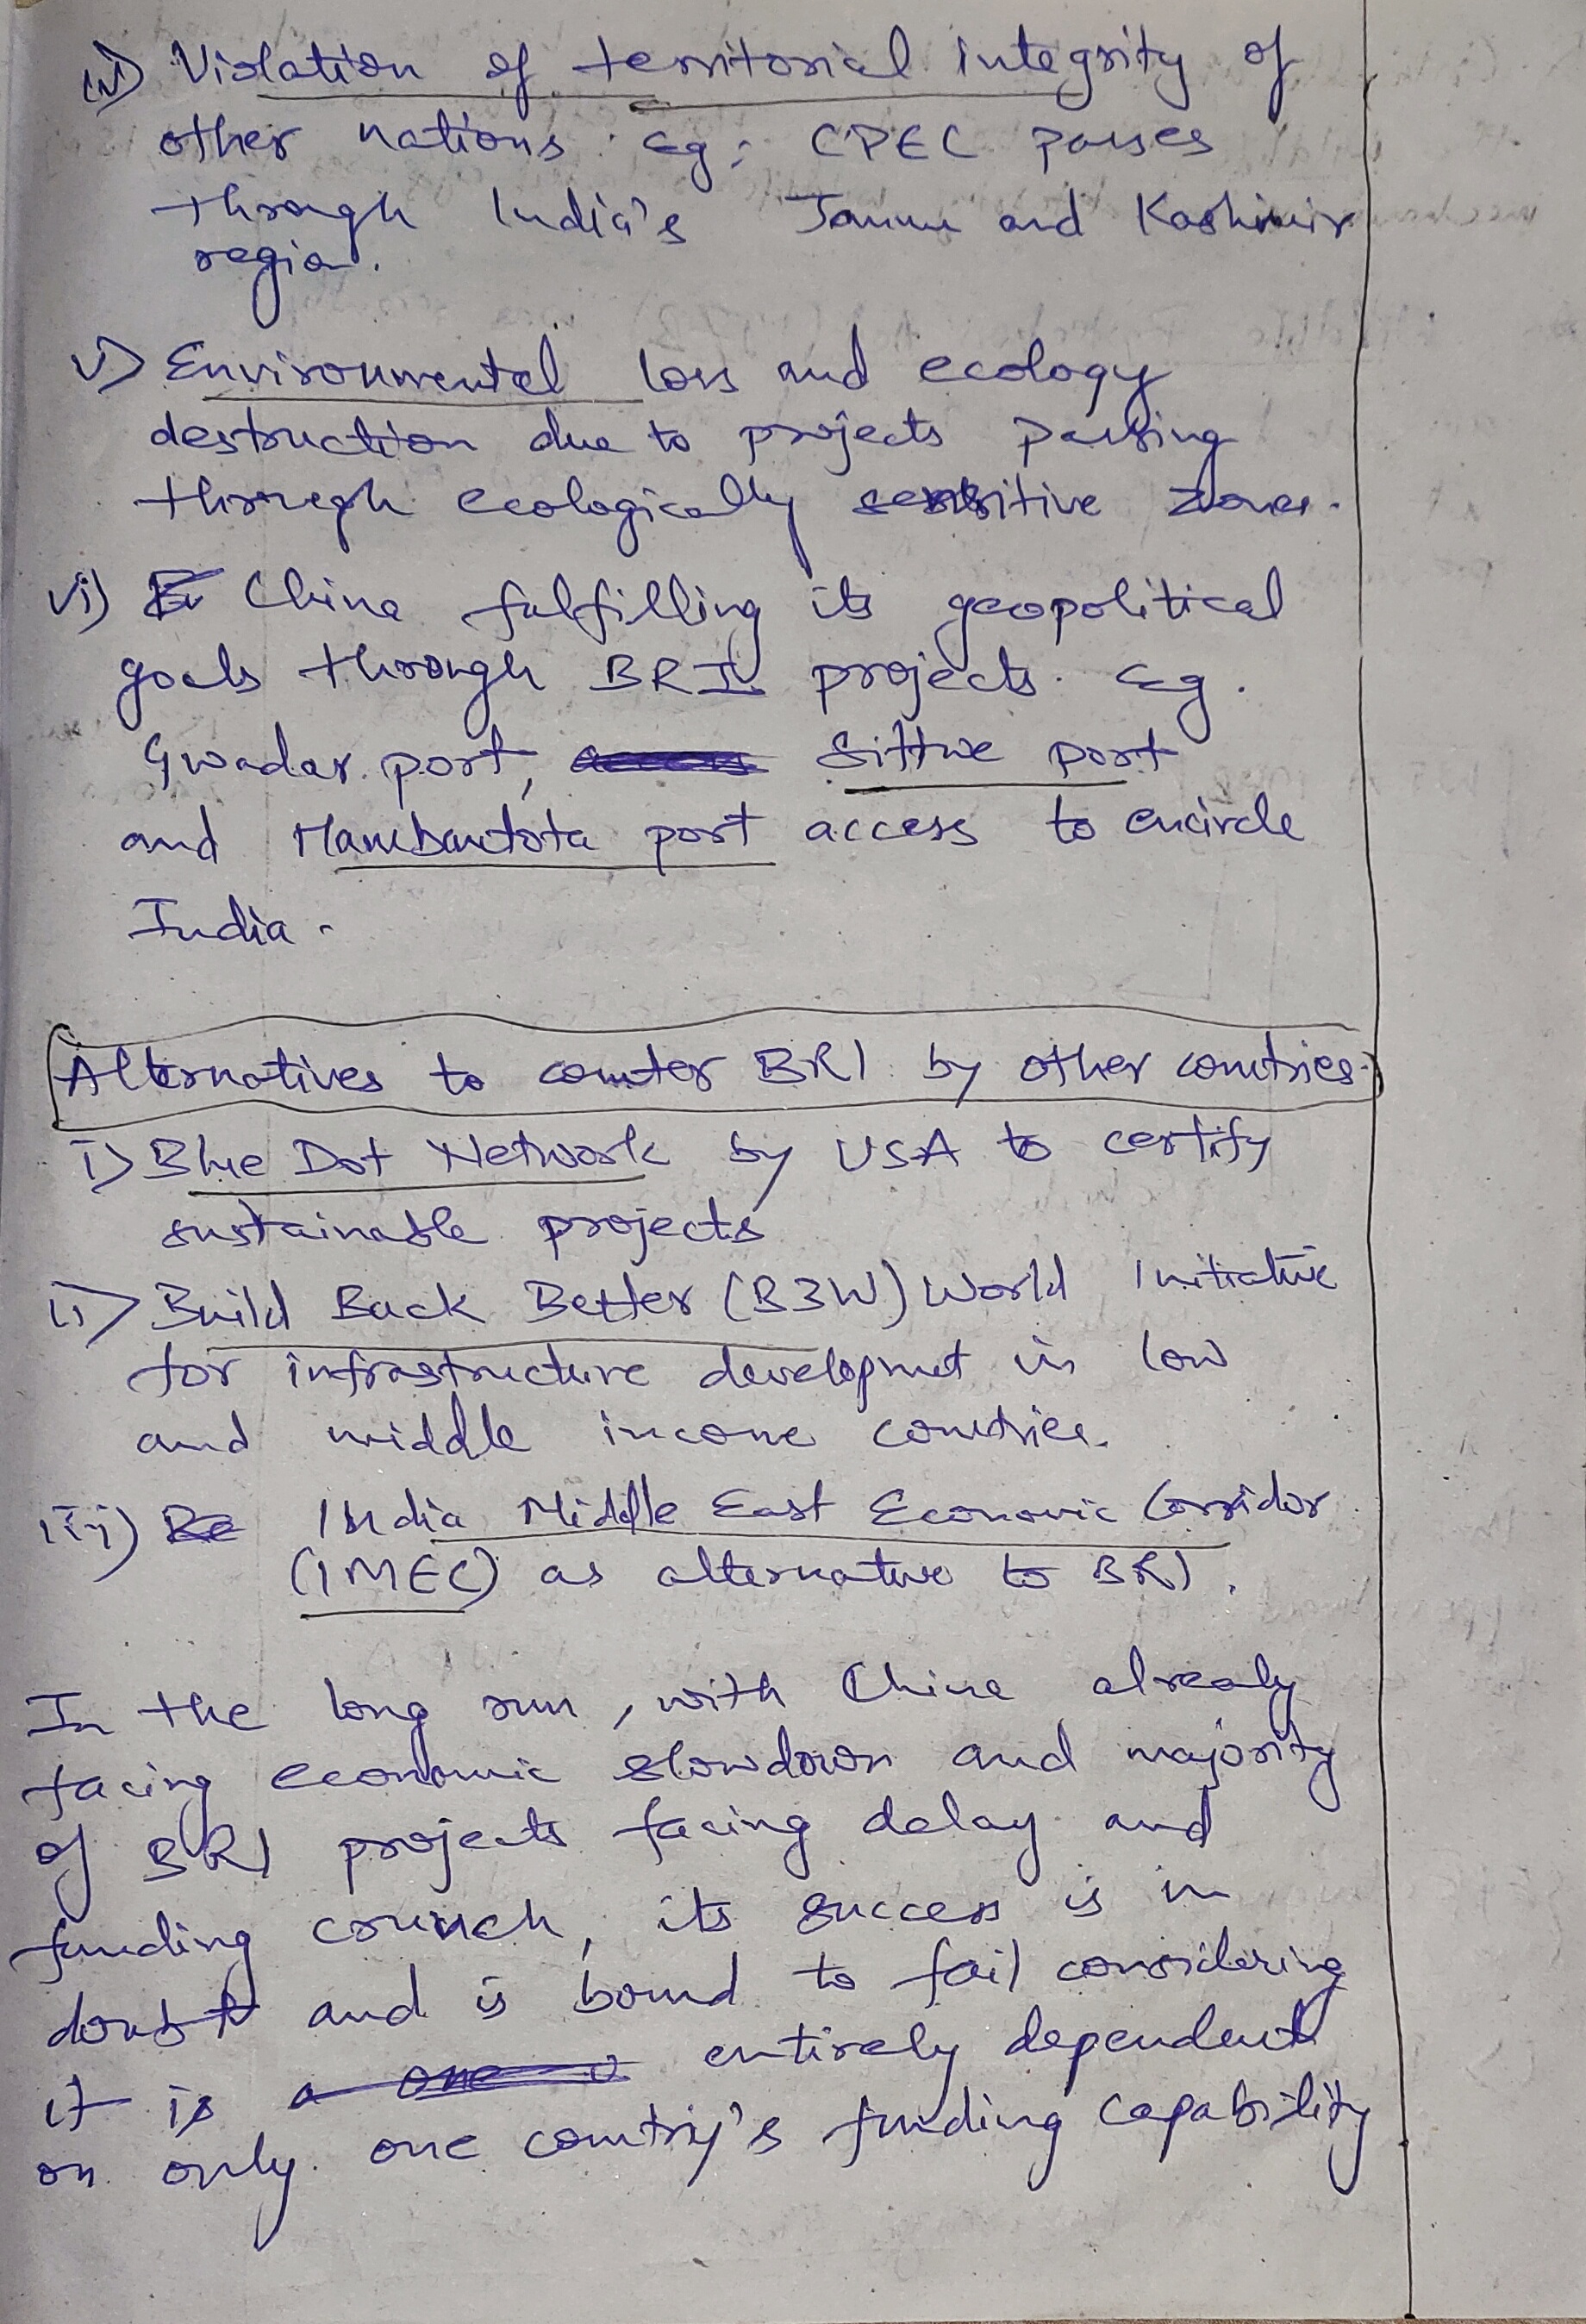 iv) Violation of territorial integrity of
other nations. eg: CPEC passes
through India's Jammu and Kashmir
region.
v) Environmental loss and ecology
destruction due to projects passing
through ecologically sensitive zones.
vi) China fulfilling its geopolitical
goals through BRI projects. Eg.
Gwadar port, Sittwe port
and Hambantota port access to encircle
India.
Alternatives to counter BRI by other countries.
i) Blue Dot Network by USA to certify
sustainable projects
ii) Build Back Better (B3W) World Initiative
for infrastructure developmet in low
and middle income countries.
iii) India Middle East Economic Corridor
(IMEC) as alternative to BRI.
In the long run, with China already
facing economic slowdown and majority
of BRI projects facing delay and
funding crunch, its success is in
doubt and is bound to fail considering
it is entirely dependent
on only one country's funding capability